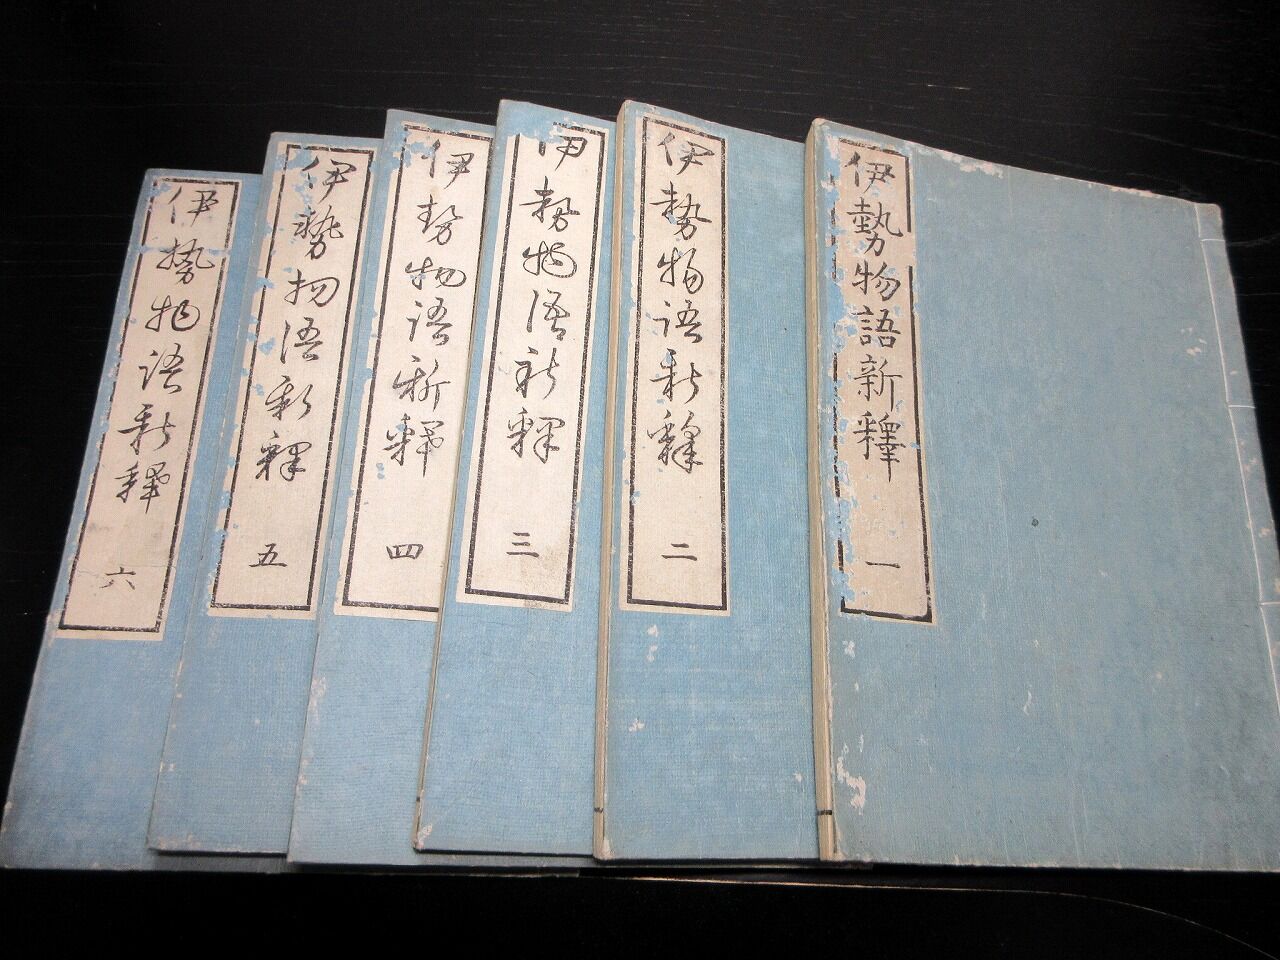 伊勢物語新釋 一
伊勢物語新釋 二
伊勢物語新釈 三
伊勢物語新釋 四
伊勢物語新釈 五
伊勢物語新釋 六